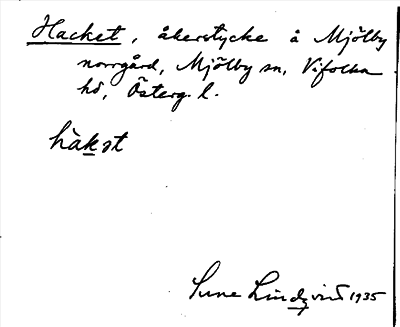 Hacket, åkerstycke å Mjölby
norrgård, Mjölby sn, Vifolka
hd, Österg. l.
hàkst
Sune Lindqvist 1935